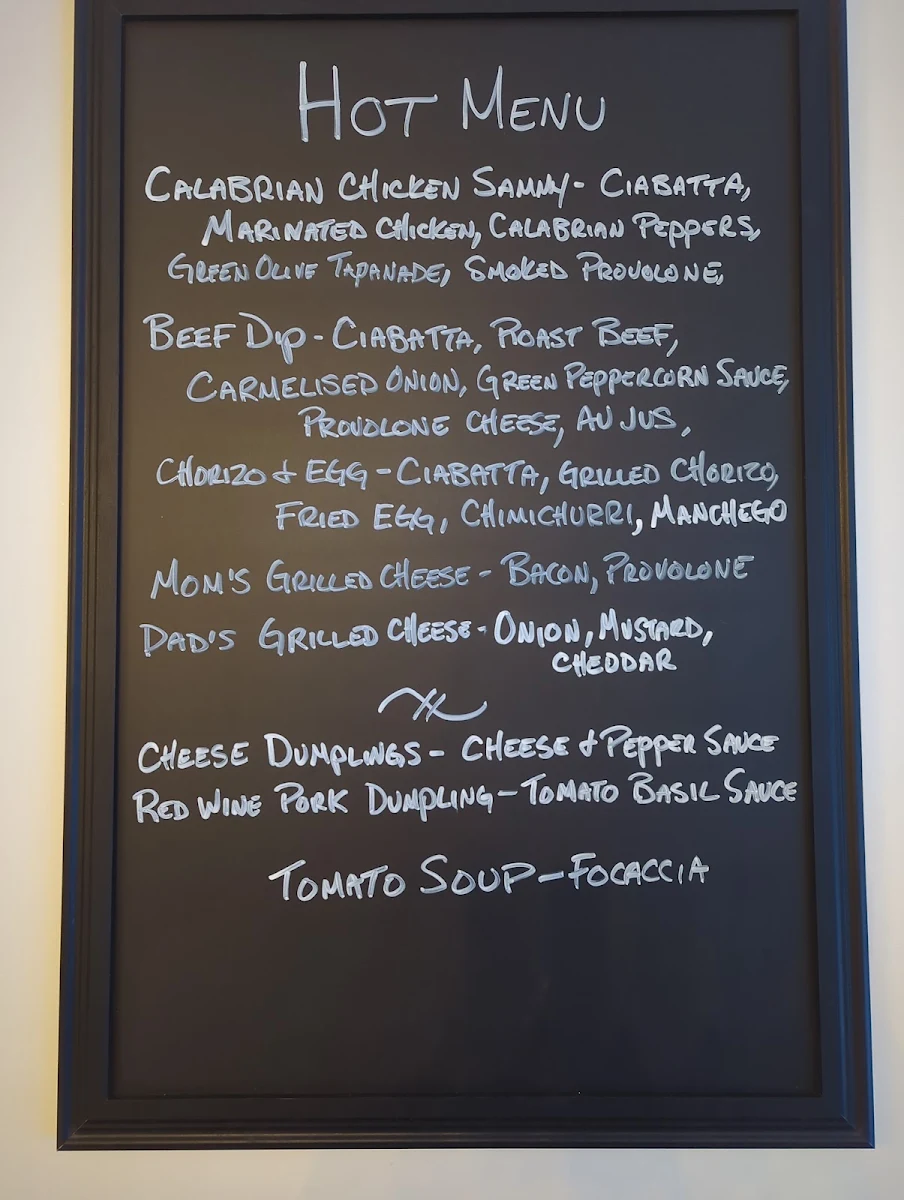 HOT MENU
CALABRIAN CHICKEN SAMMY - CIABATTA,
MARINATED CHICKEN, CALABRIAN PEPPERS,
GREEN OLIVE TAPANADE, SMOKED PROVOLONE,
BEEF DIP - CIABATTA, ROAST BEEF,
CARMELISED ONION, GREEN PEPPERCORN SAUCE,
PROVOLONE CHEESE, AU JUS,
CHORIZO & EGG - CIABATTA, GRILLED CHORIZO,
FRIED EGG, CHIMICHURRI, MANCHEGO
MOM'S GRILLED CHEESE - BACON, PROVOLONE
DAD'S GRILLED CHEESE - ONION, MUSTARD,
CHEDDAR
CHEESE DUMPLINGS - CHEESE & PEPPER SAUCE
RED WINE PORK DUMPLING - TOMATO BASIL SAUCE
TOMATO SOUP - FOCACCIA